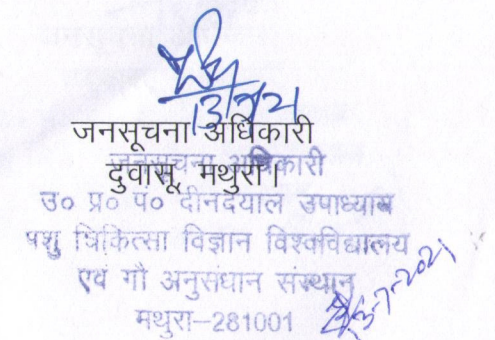 13/7/21
जनसूचना अधिकारी
दुवासू, मथुरा।
जनसूचना अधिकारी
उ० प्र० पं० दीनदयाल उपाध्याय
पशु चिकित्सा विज्ञान विश्वविद्यालय
एवं गौ अनुसंधान संस्थान
मथुरा–281001